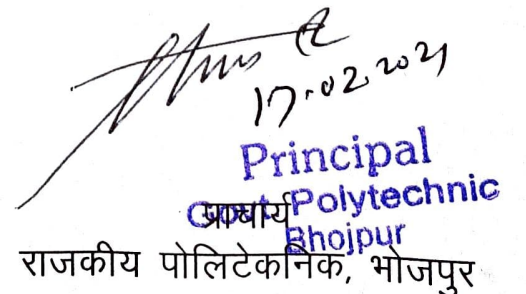 17.02.2021
Principal
Govt. Polytechnic
प्राचार्य
Bhojpur
राजकीय पोलिटेकनिक, भोजपुर